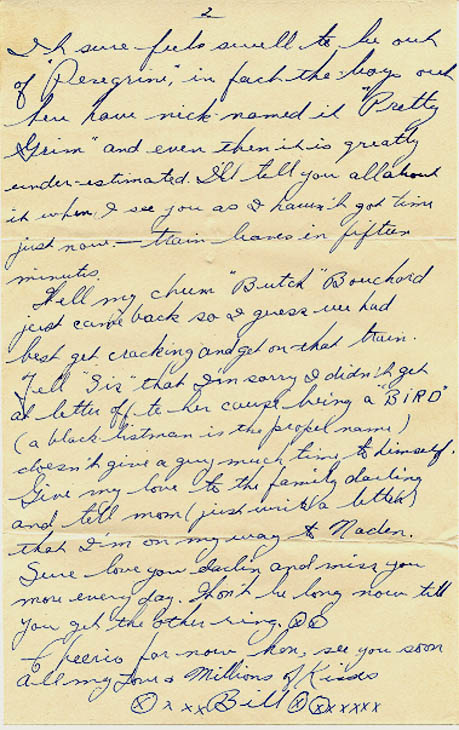 2
It sure feels swell to be out
of "Peregrine", in fact the boys out
here have nick-named it "Pretty
Grim" and even then it is greatly
under-estimated. I'll tell you all about
it when I see you as I haven't got time
just now — train leaves in fifteen
minutes.
Well my chum "Butch" Bouchard
just came back so I guess we had
best get cracking and get on that train.
Tell "Sis" that I'm sorry I didn't get
a letter off to her cause being a "BiRD"
(a black listman is the proper name)
doesn't give a guy much time to himself.
Give my love to the family darling
and tell mom (just write a letter)
that I'm on my way to Naden.
Sure love you darlin and miss you
more every day. Won't be long now till
you get the other ring.
Cheerio for now hon, see you soon
All my love & Millions of Kisses
x x x Bill x x x x x